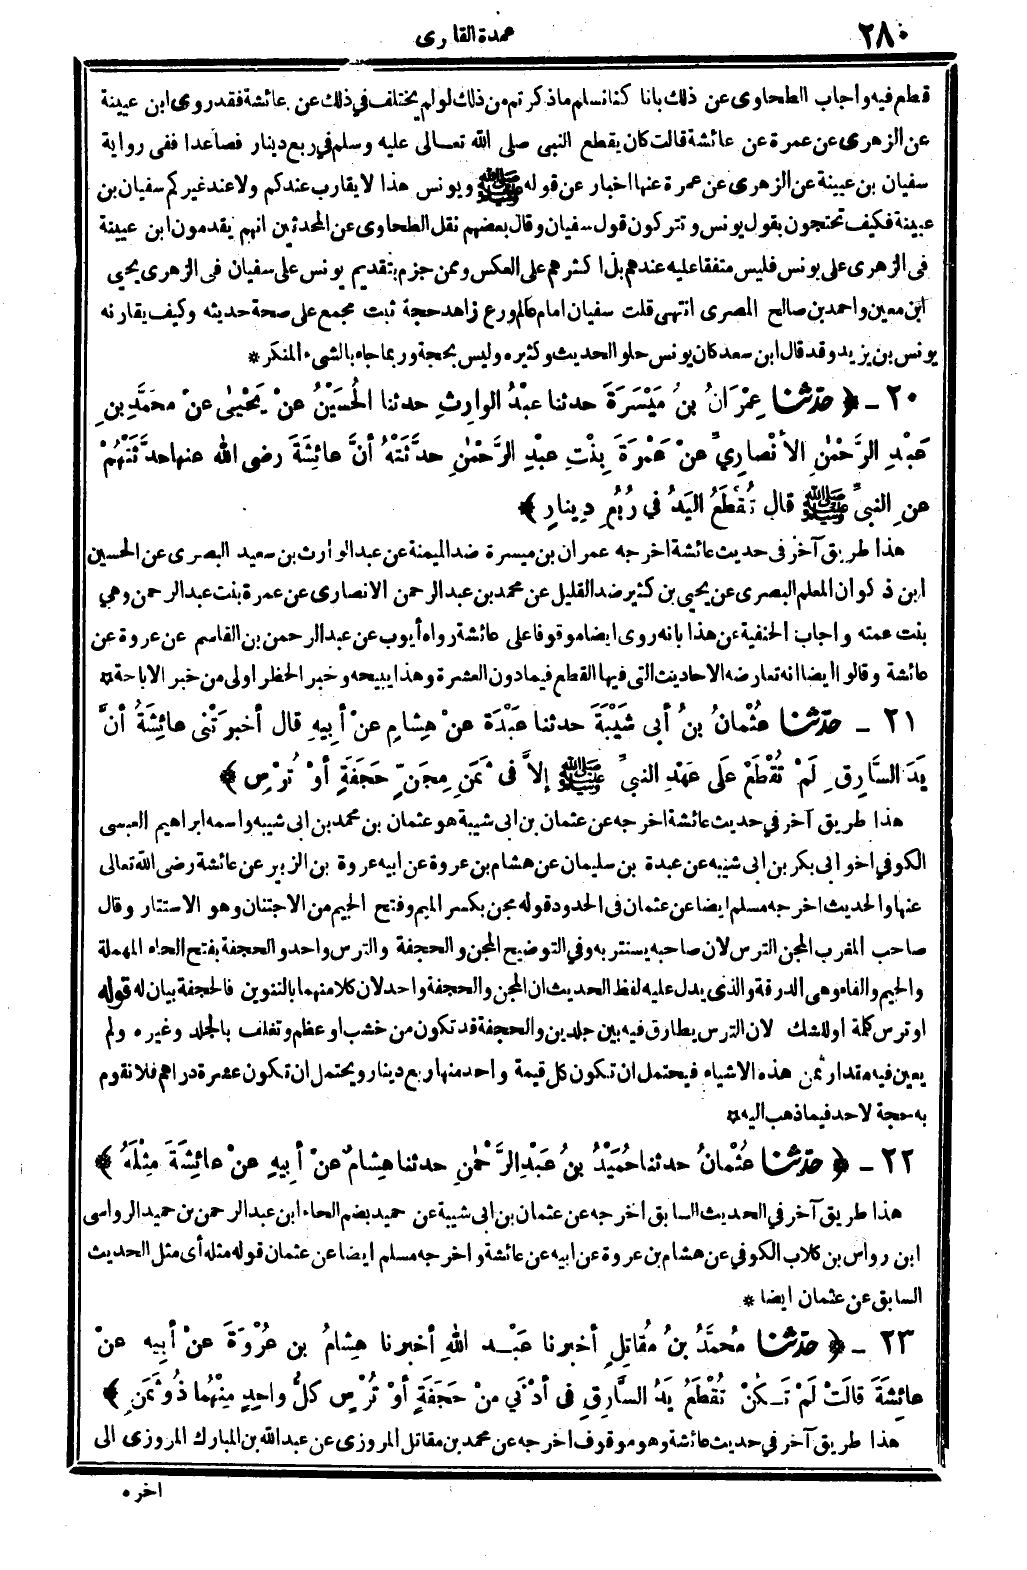 ٢٨٠
عمدة القارى
قطع فيه واجاب الطحاوى عن ذلك بانا كنا نسلم ماذكرتم من ذلك لو لم يختلف فى ذلك عن عائشة فقد روى ابن عيينة
عن الزهرى عن عمرة عن عائشة قالت كان يقطع النبى صلى الله تعالى عليه وسلم فى ربع دينار فصاعدا ففى رواية
سفيان بن عيينة عن الزهرى عن عمرة عنها اخبار عن قوله ﷺ ويونس هذا لا يقارب عندكم ولا عند غيركم سفيان بن
عيينة فكيف تحتجون بقول يونس وتتركون قول سفيان وقال بعضهم نقل الطحاوى عن المحدثين انهم يقدمون ابن عيينة
فى الزهرى على يونس فليس متفقا عليه عندهم بل اكثرهم على العكس وممن جزم بتقديم يونس على سفيان فى الزهرى يحيى
ابن معين واحمد بن صالح المصرى انتهى قلت سفيان امام عالم ورع زاهد حجة ثبت مجمع على صحة حديثه وكيف يقارنه
يونس بن يزيد وقد قال ابن سعد كان يونس حلو الحديث وكثيره وليس بحجة وربما جاء بالشىء المنكر *
٢٠ - ﴿ حَدَّثَنَا عِمْرَانُ بنُ مَيْسَرَةَ حدثنا عبْدُ الوارِثِ حدثنا الحُسَيْنُ عنْ يَحْيىٰ عنْ محَمَّدِ بنِ
عَبْدِ الرَّحْمٰنِ الأنْصارِيِّ عنْ عَمْرَةَ بِنْتِ عبْدِ الرَّحْمٰنِ حدَّثَتْهُ أنَّ عائِشَةَ رضى الله عنها حدَّثَتْهُمْ
عنِ النبىِّ ﷺ قال تُقْطَعُ اليَدُ في رُبُعِ دِينارٍ ﴾
هذا طريق آخر فى حديث عائشة اخرجه عمران بن ميسرة ضد الميمنة عن عبد الوارث بن سعيد البصرى عن الحسين
ابن ذكوان المعلم البصرى عن يحيى بن كثير ضد القليل عن محمد بن عبد الرحمن الانصارى عن عمرة بنت عبد الرحمن وهي
بنت عمته واجاب الحنفية عن هذا بانه روى ايضا موقوفا على عائشة رواه أيوب عن عبد الرحمن بن القاسم عن عروة عن
عائشة وقالوا ايضا انه تعارضه الاحاديث التى فيها القطع فيما دون العشرة وهذا يبيحه وخبر الحظر اولى من خبر الاباحة *
٢١ - حَدَّثَنَا عُثْمانُ بنُ أبى شَيْبَةَ حدثنا عَبْدَة عنْ هِشامٍ عنْ أبِيهِ قال أخبرَتْنى عائِشَةُ أنَّ
يَدَ السَّارِقِ لَمْ تُقْطَعْ علَى عَهْدِ النبىِّ ﷺ إلاَّ فى ثَمَنِ مِجَنٍّ حَجَفَةٍ أوْ تُرْسٍ ﴾
هذا طريق آخر في حديث عائشة اخرجه عن عثمان بن ابى شيبة هو عثمان بن محمد بن ابى شيبه واسمه ابراهيم العبسى
الكوفي اخو ابى بكر بن ابى شيبه عن عبدة بن سليمان عن هشام بن عروة عن ابيه عروة بن الزبير عن عائشة رضى الله تعالى
عنها والحديث اخرجه مسلم ايضا عن عثمان فى الحدود قوله مجن بكسر الميم وفتح الجيم من الاجتنان وهو الاستتار وقال
صاحب المغرب المجن الترس لان صاحبه يستتر به وفي التوضيح المجن والحجفة والترس واحد والحجفة بفتح الحاء المهملة
والجيم والفاء وهى الدرقة والذى يدل عليه لفظ الحديث ان المجن والحجفة واحد لان كلا منهما بالتنوين فالحجفة بيان له قوله
او ترس كلمة او للشك لان الترس يطارق فيه بين جلدين والحجفة قد تكون من خشب او عظم وتغلف بالجلد وغيره ولم
يعين فيه مقدار ثمن هذه الاشياء فيحتمل ان تكون كل قيمة واحد منها ربع دينار ويحتمل ان تكون عشرة دراهم فلا تقوم
به حجة لاحد فيما ذهب اليه *
٢٢ - ﴿ حَدَّثَنَا عُثْمانُ حدثنا حُمَيْدُ بنُ عَبْدِ الرَّحْمٰنِ حدثنا هِشامٌ عنْ أبِيهِ عنْ عائِشَةَ مِثْلَهُ ﴾
هذا طريق آخر في الحديث السابق اخرجه عن عثمان بن ابى شيبة عن حميد بضم الحاء ابن عبد الرحمن بن حميد الرواسى
ابن رواس بن كلاب الكوفي عن هشام بن عروة عن ابيه عن عائشة واخرجه مسلم ايضا عن عثمان قوله مثله أى مثل الحديث
السابق عن عثمان ايضا *
٢٣ - ﴿ حَدَّثَنَا مُحمَّدُ بنُ مُقاتِلٍ أخبرنا عَبْدُ اللهِ أخبرنا هِشامُ بن عُرْوَةَ عنْ أبِيهِ عنْ
عائِشَةَ قالَتْ لَمْ تَكُنْ تُقْطَعُ يَدُ السَّارِقِ فى أدْنَي مِنْ حَجَفَةٍ أوْ تُرْسٍ كلُّ واحِدٍ مِنْهُما ذُو ثَمَنٍ ﴾
هذا طريق آخر في حديث عائشة وهو موقوف اخرجه عن محمد بن مقاتل المروزى عن عبد الله بن المبارك المروزى الى
اخره